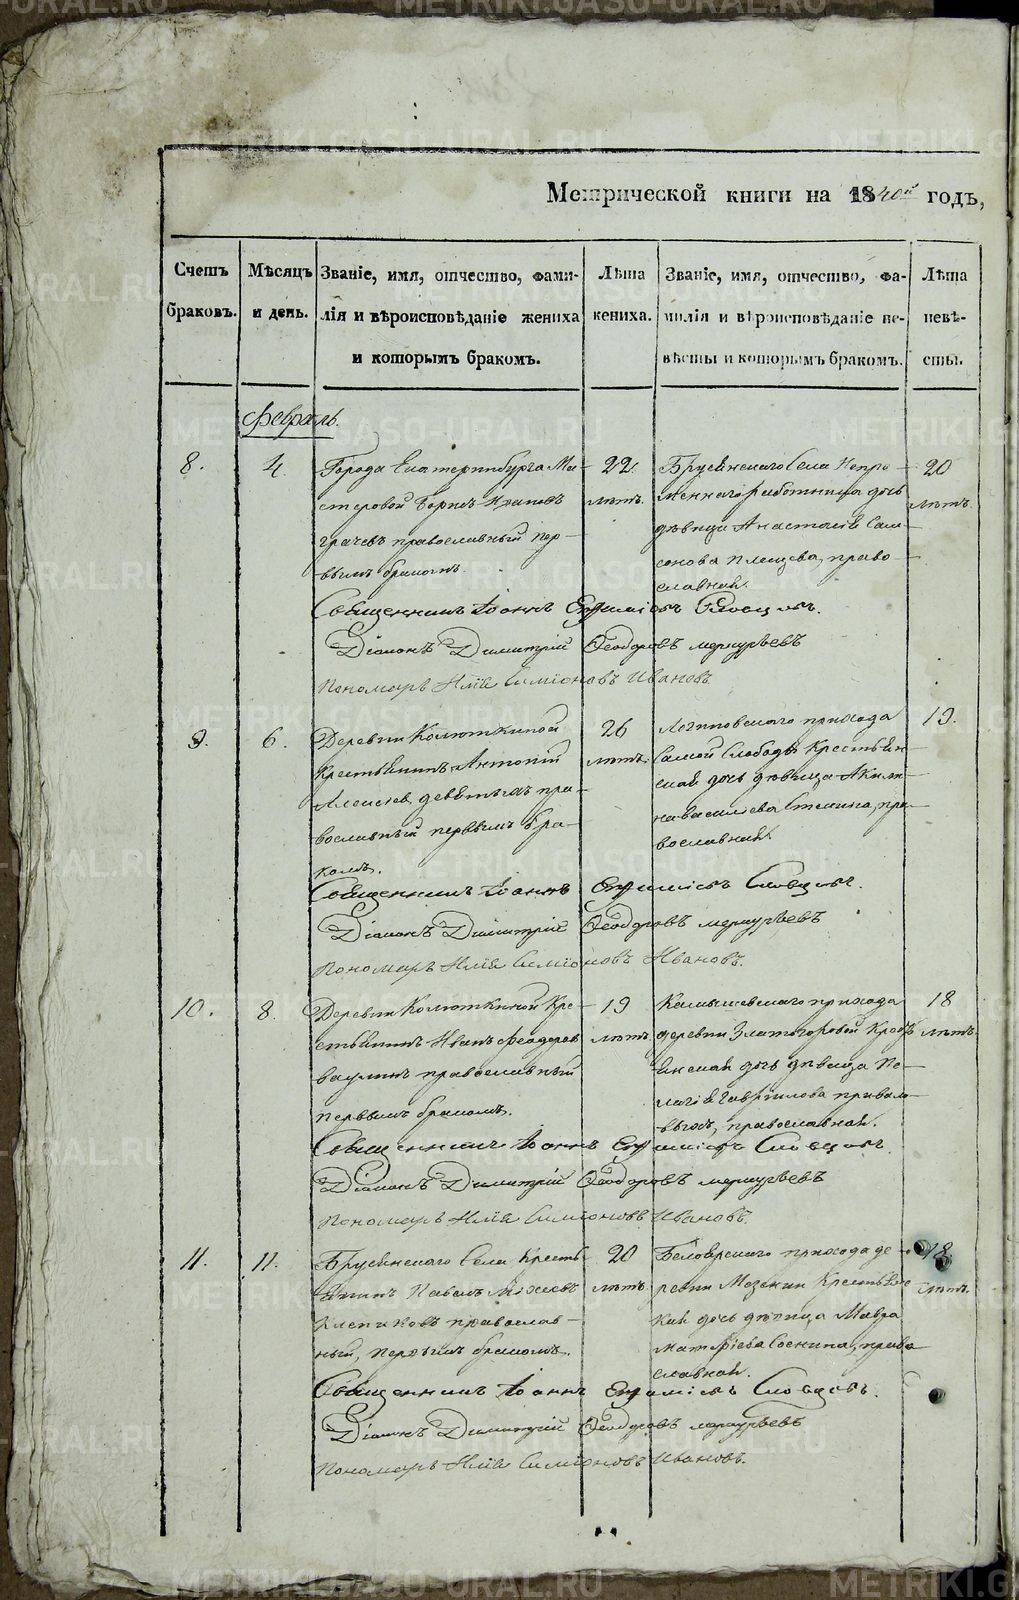 Метрической книги на 1840й годъ,
Счетъ
браковъ.
Мѣсяцъ
и день.
Званіе, имя, отчество, фами-
лія и вѣроисповѣданіе жениха
и которымъ бракомъ.
Лѣта
жениха.
Званіе, имя, отчество, фа-
милія и вѣроисповѣданіе не-
вѣсты и которымъ бракомъ.
Лѣта
невѣ-
сты.
Февраль.
8.
4
Города Екатеринбурга Ма-
стеровой Борисъ Ивановъ
грачевъ православный пер-
вымъ бракомъ.
22.
лѣтъ.
Брусянскаго Села Непре-
меннаго работника дочь
дѣвица Анастасія Сам-
сонова право-
славная.
20
лѣтъ.
Священникъ Іоаннъ Словцовъ.
Діаконъ Димитрій Ѳеодоровъ меркурьевъ
Пономарь Илія Симіоновъ Ивановъ.
9.
6.
Деревни Колюткиной
Крестьянинъ Антоній
Алексіевъ девятыхъ пра-
вославный первымъ бра-
комъ.
26
лѣтъ.
Логиновскаго прихода
Самой Слободы Крестьян-
ская дочь дѣвица Акили-
на Васильева пра-
вославная.
19.
Священникъ Іоаннъ Словцовъ.
Діаконъ Димитрій Ѳеодоровъ меркурьевъ
Пономарь Илія Симіоновъ Ивановъ.
10.
8.
Деревни Колюткиной Кре-
стьянинъ Иванъ феодоровъ
ваулинъ православный
первымъ бракомъ.
19
лѣтъ.
Камышевскаго прихода
деревни Златогоровой Кресть-
янская дочь дѣвица Пе-
лагія Гаврилова привало-
выхъ, православная.
18
лѣтъ.
Священникъ Іоаннъ Словцовъ.
Діаконъ Димитрій Ѳеодоровъ меркурьевъ
Пономарь Илія Симіоновъ Ивановъ.
11.
11.
Брусянскаго Села Кресть-
янинъ Павелъ
Клепиковъ православ-
ный, первымъ бракомъ.
20
лѣтъ.
Белоярскаго прихода де-
ревни Мезенки Крестьянс-
кая дочь дѣвица Мавра
Матфіева права-
славная.
18.
лѣтъ.
Священникъ Іоаннъ Словцовъ.
Діаконъ Димитрій Ѳеодоровъ меркурьевъ
Пономарь Илія Симіоновъ Ивановъ.
METRIKI.GASO-URAL.RU